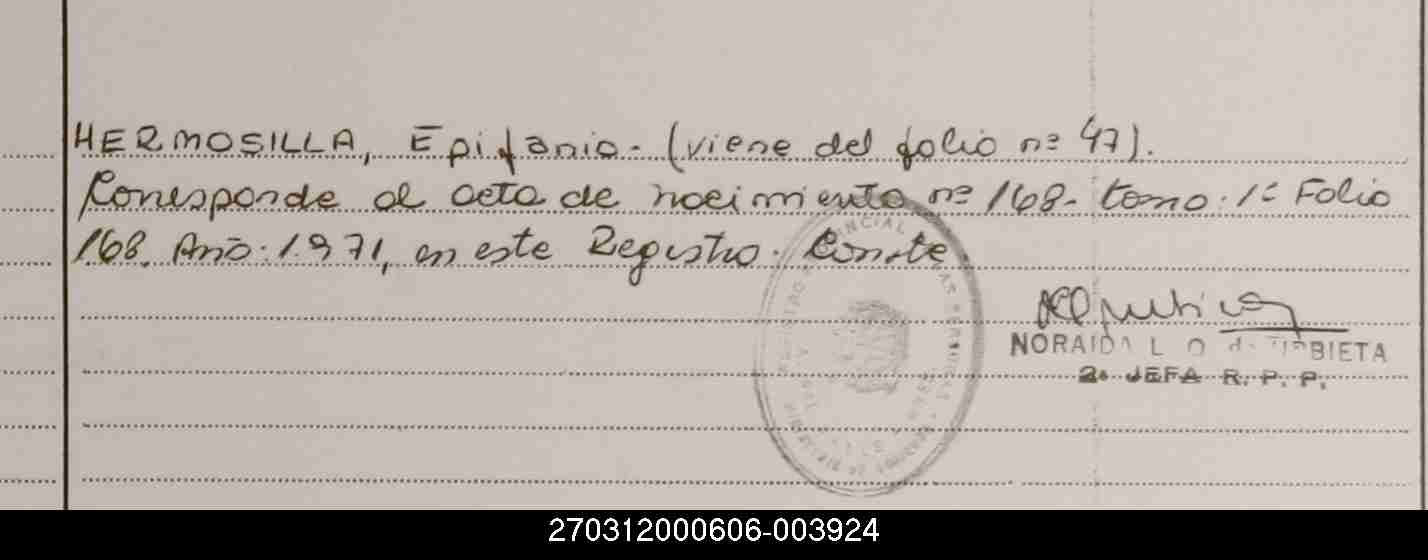 HERMOSILLA, Epifanio. (viene del folio nº 47).
Corresponde al acta de nacimiento nº 168. tomo. 1º Folio
168. Año: 1.971, en este Registro. Conste.
NORAIDA L O de BIETA
2º JEFA R. P. P.
270312000606-003924